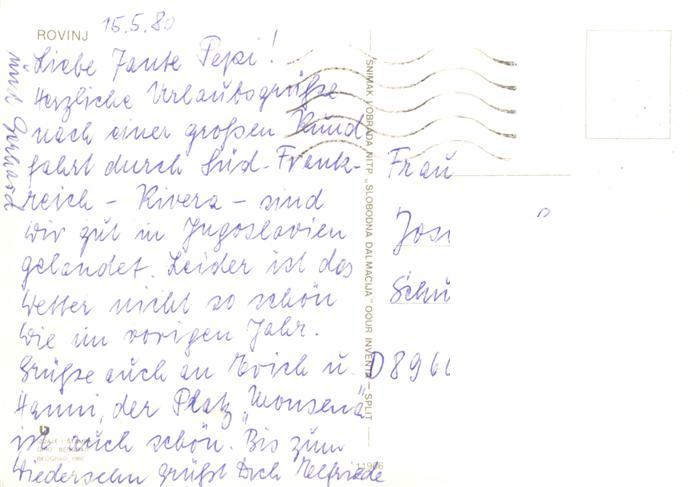 ROVINJ 15.5.80
Liebe Tante Pepi!
Herzliche Urlaubsgrüße
nach einer großen Rund
fahrt durch Süd-Frank-
reich - Rivera - sind
wir gut in Jugoslavien
gelandet. Leider ist das
Wetter nicht so schön
wie im vorigen Jahr.
Grüße auch an Erich u.
Hanni, der Platz „Monsena"
ist auch schön. Bis zum
Wiedersehn grüßt Dich Elfriede
und Gerhard
SNIMAK I OBRADA NITP „SLOBODNA DALMACIJA" OOUR INVENTA — SPLIT
Frau
Jos
Schu
D 896
11966
BEOGRAD